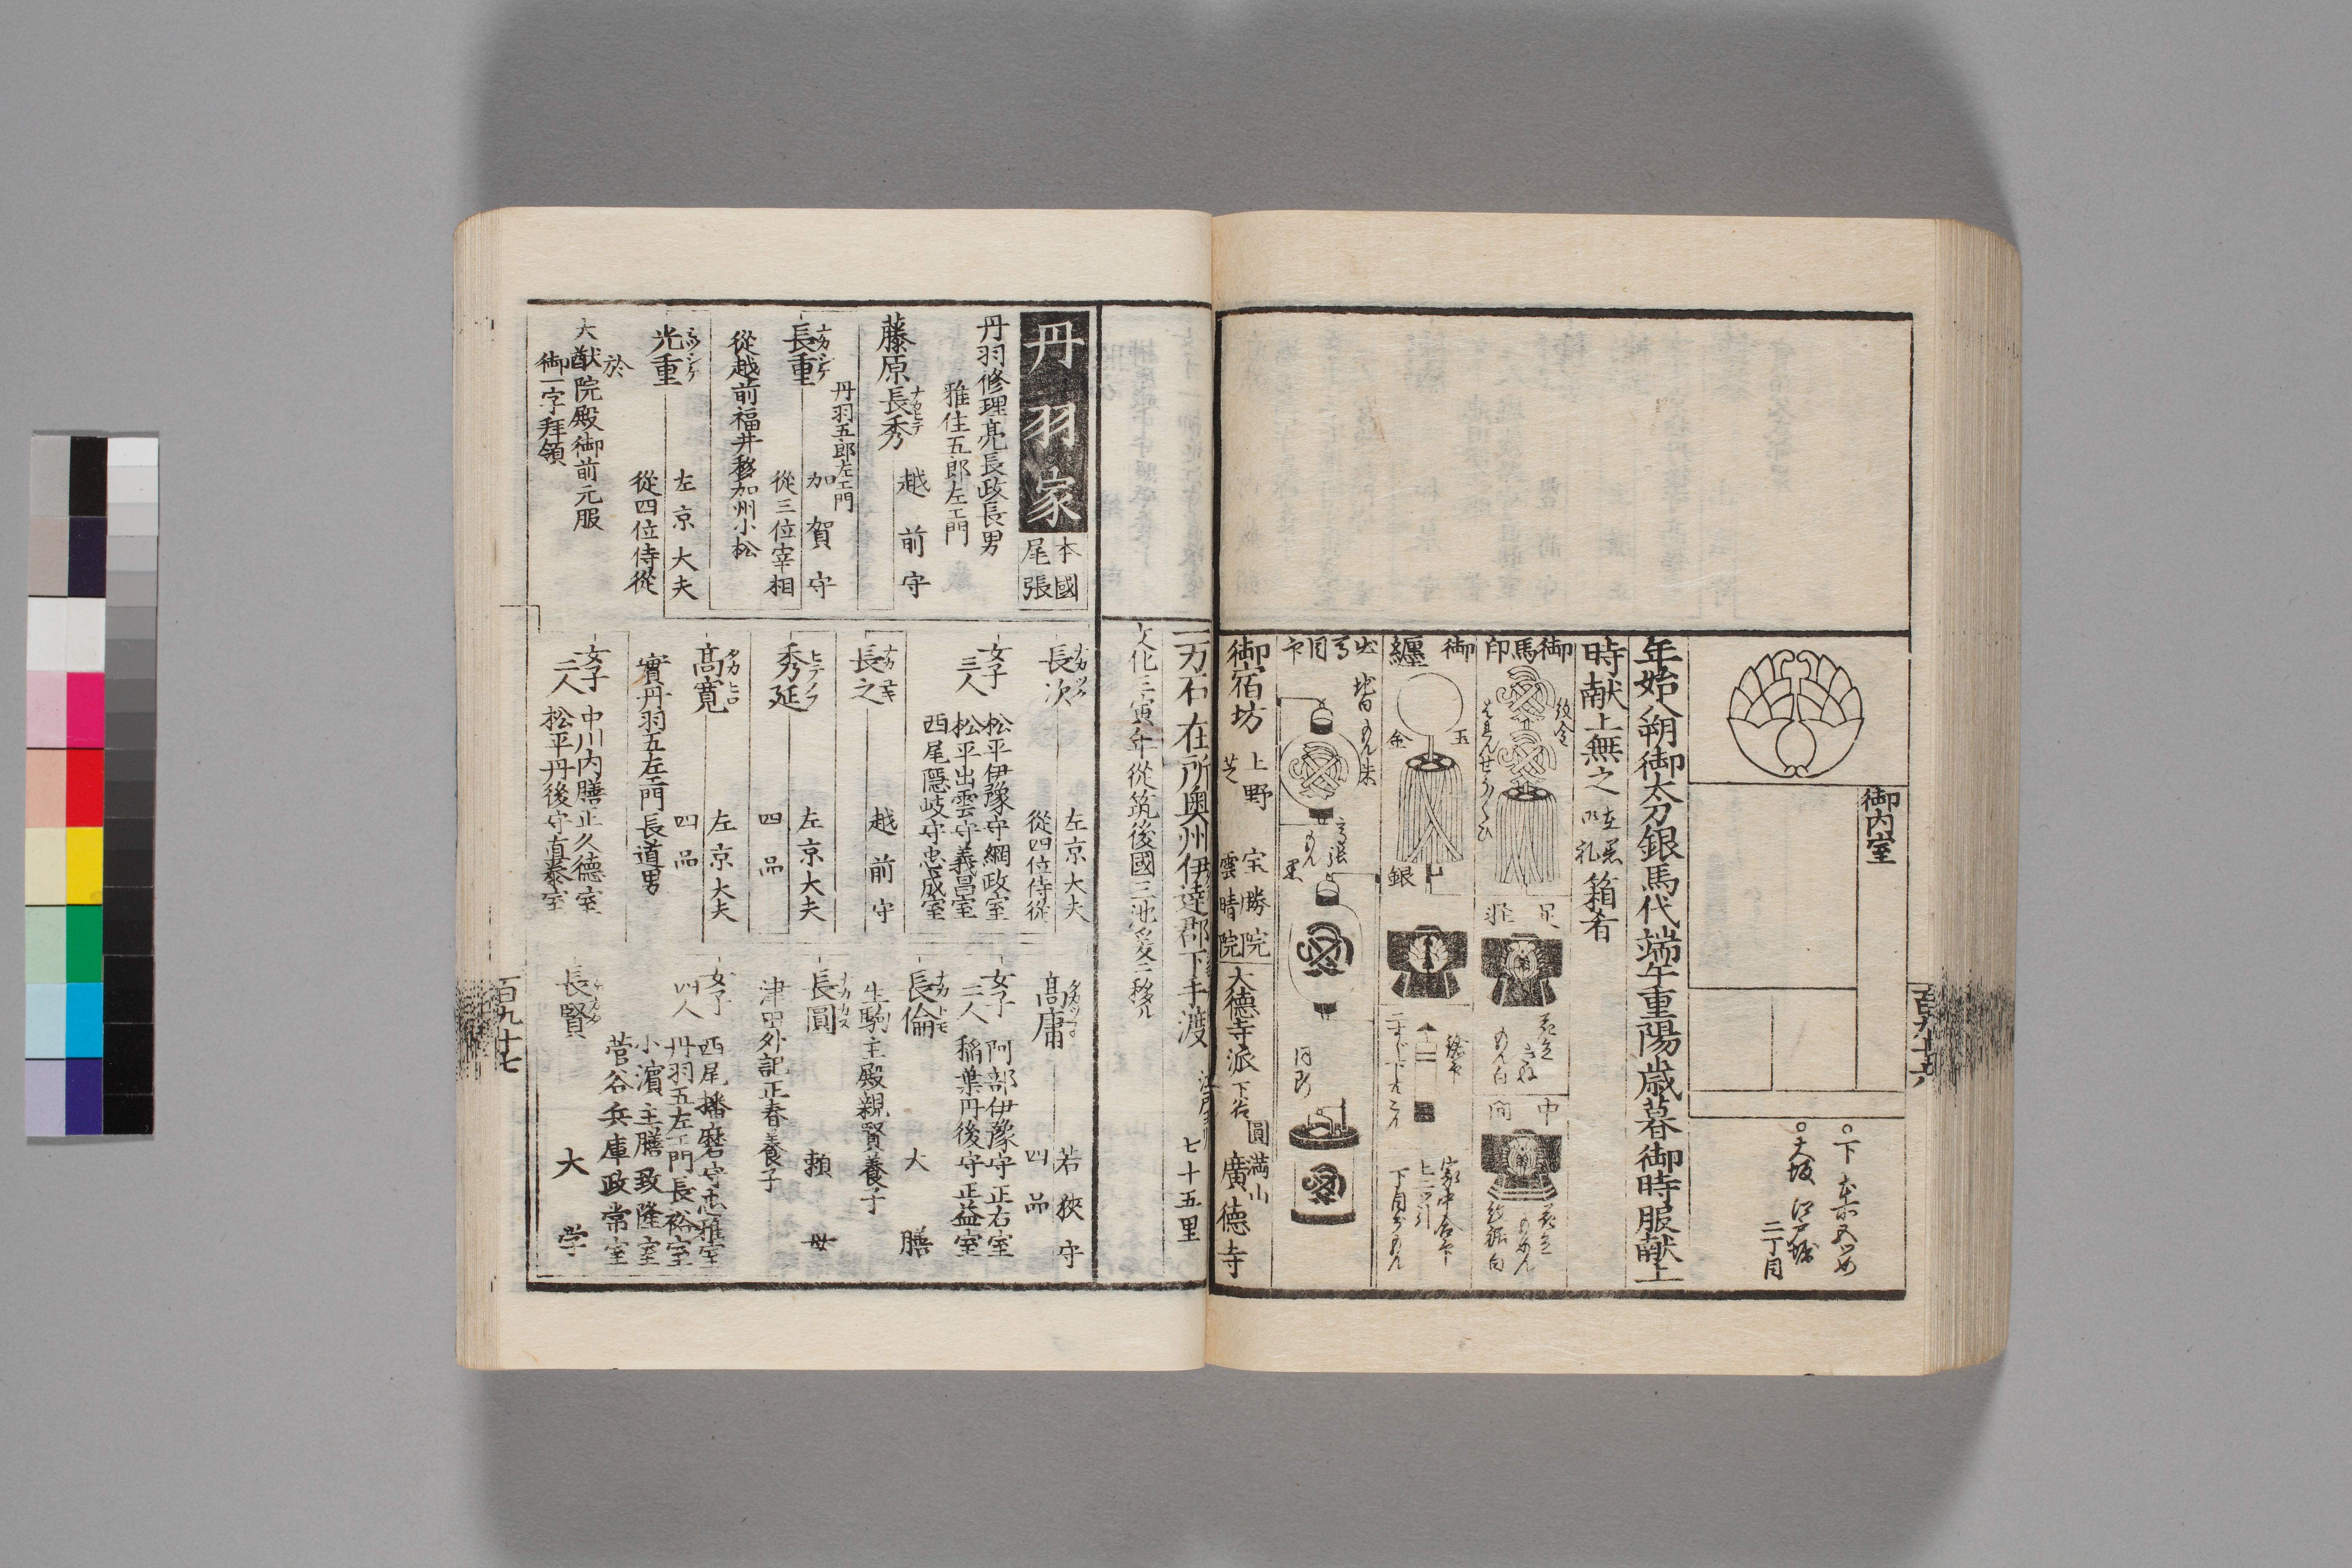 御内室
○下
○大坂 江戸堀
二丁目
年始八朔御太刀銀馬代端午重陽歳暮御時服献上
時献上無之
箱肴
御馬印
紋金
中間
御纏
玉
金
銀
地白もん朱
高張
もん
黒
御宿坊
上野 宝勝院
芝 雲晴院
大德寺派
下谷
圓満山
廣德寺
百九十六
一万石 在所奥州伊達郡下手渡
江戸ヨリ
七十五里
文化三寅年從筑後國三池爰ニ移ル
丹羽家
本國
尾張
丹羽修理亮長政長男
雅住五郎左エ門
藤原長秀
ナカヒテ
越前守
丹羽五郎左エ門
長重
ナカシケ
加賀守
從三位宰相
從越前福井移加州小松
光重
ミツシケ
左京大夫
從四位侍從
於
大猷院殿御前元服
御一字拜領
長次
ナカツク
左京大夫
從四位侍從
女子
三人
松平伊豫守綱政室
松平出雲守義昌室
西尾隱岐守忠成室
長之
ナカユキ
越前守
秀延
ヒテノフ
左京大夫
四品
髙寛
タカヒロ
左京大夫
四品
實丹羽五左エ門長道男
女子
二人
中川内膳正久德室
松平丹後守直泰室
髙庸
若狹守
四品
女子
二人
阿部伊豫守正右室
稲葉丹後守正益室
長倫
ナカトモ
大膳
生駒主殿親賢養子
長圓
ナカカス
頼母
津田外記正春養子
女子
四人
西尾播磨守忠雅室
丹羽五左エ門長裕室
小濵主膳致隆室
菅谷兵庫政常室
長賢
大学
百九十七